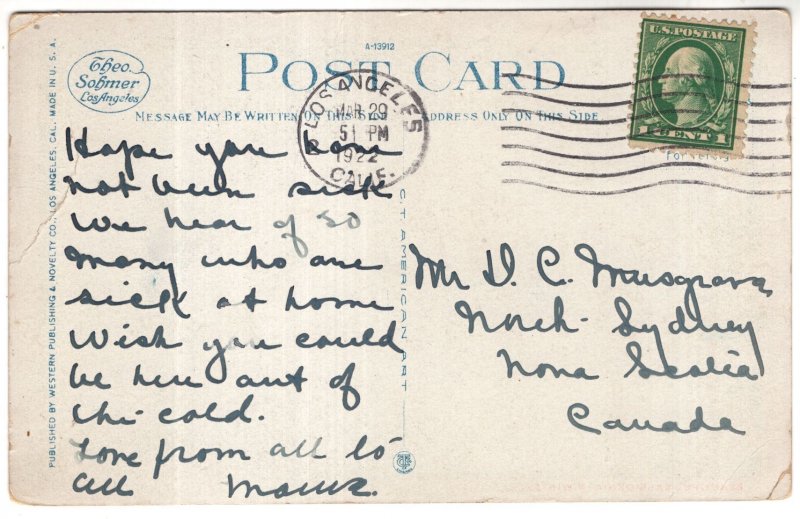 A-13912
Theo.
Sohmer
Los Angeles
POST CARD
MESSAGE MAY BE WRITTEN ON THIS SIDE
ADDRESS ONLY ON THIS SIDE
LOS ANGELES
MAR 29
PM
1922
CALIF.
U.S. POSTAGE
1 CENT 1
Hope you have
not been sick
We hear of so
many who are
sick at home
Wish you could
be here out of
the cold.
Love from all to
all
Mr D. C. Musgrave
North Sydney
Nova Scotia
Canada
PUBLISHED BY WESTERN PUBLISHING & NOVELTY CO., LOS ANGELES, CAL. MADE IN U. S. A.
C.T. AMERICAN ART